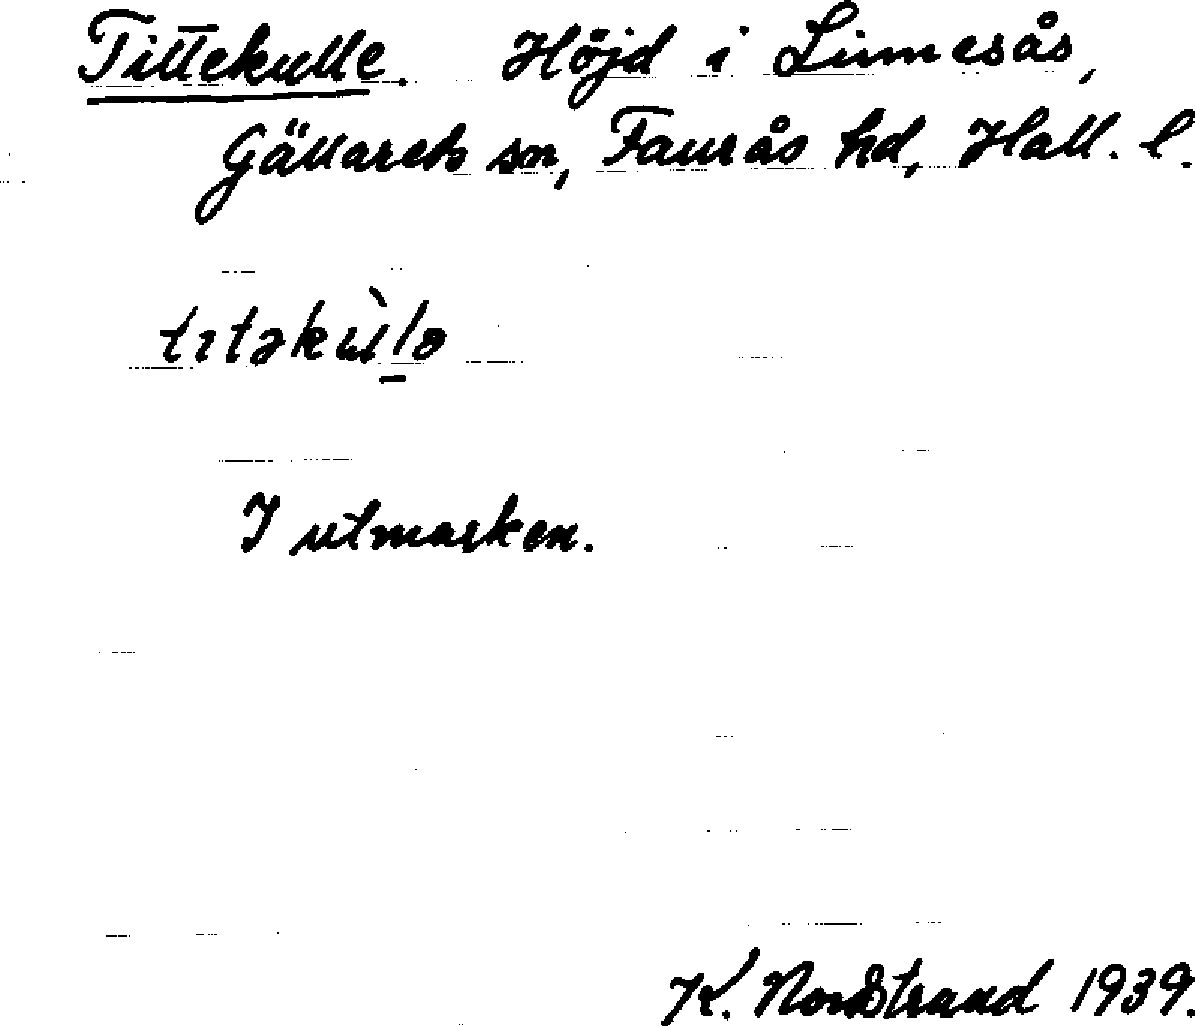 Tittekulle. Höjd i Linnesås,
Gällareds sn, Faurås hd, Hall. l.
I utmarken.
K. Nordstrand 1939.